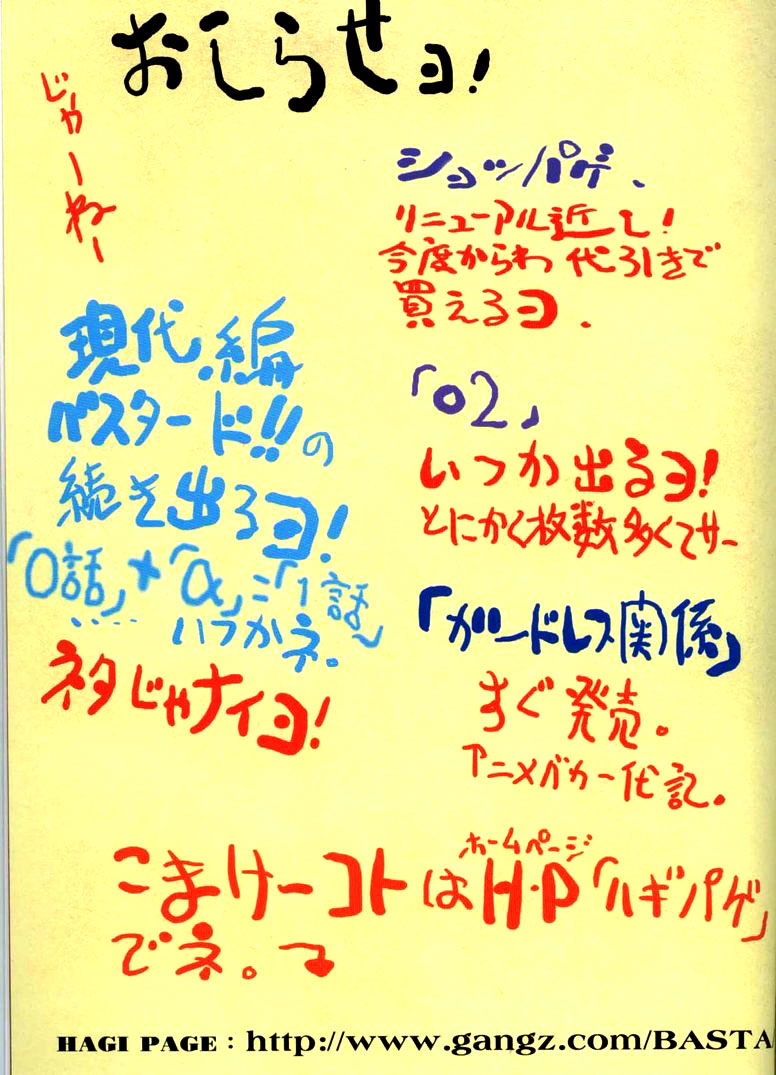 おしらせヨ!
ショッパゲ、
リニューアル近し!
今度からわ 代引きで
買えるヨ.
「02」
いつか出るヨ!
とにかく枚数多くてサー
「ガードレス関係」
すぐ発売。
アニメバカ一代記。
現代編
バスタード!!の
続き出るヨ!
「0話」+「α」=「1話」
いつかネ。
ネタじゃナイヨ!
こまけーコトはH・P「ハギパゲ」
ホームページ
でネ。
じゃーねー
HAGI PAGE : http://www.gangz.com/BASTA